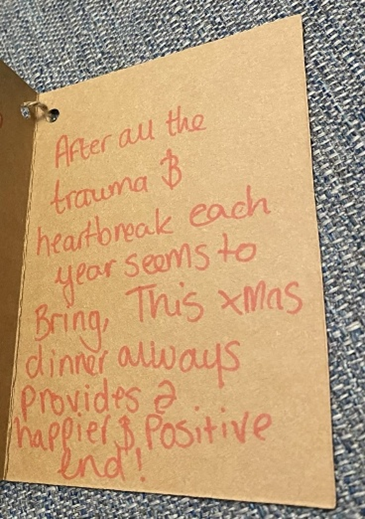 After all the
trauma &
heartbreak each
year seems to
Bring, This xmas
dinner always
provides a
happier & Positive
end!